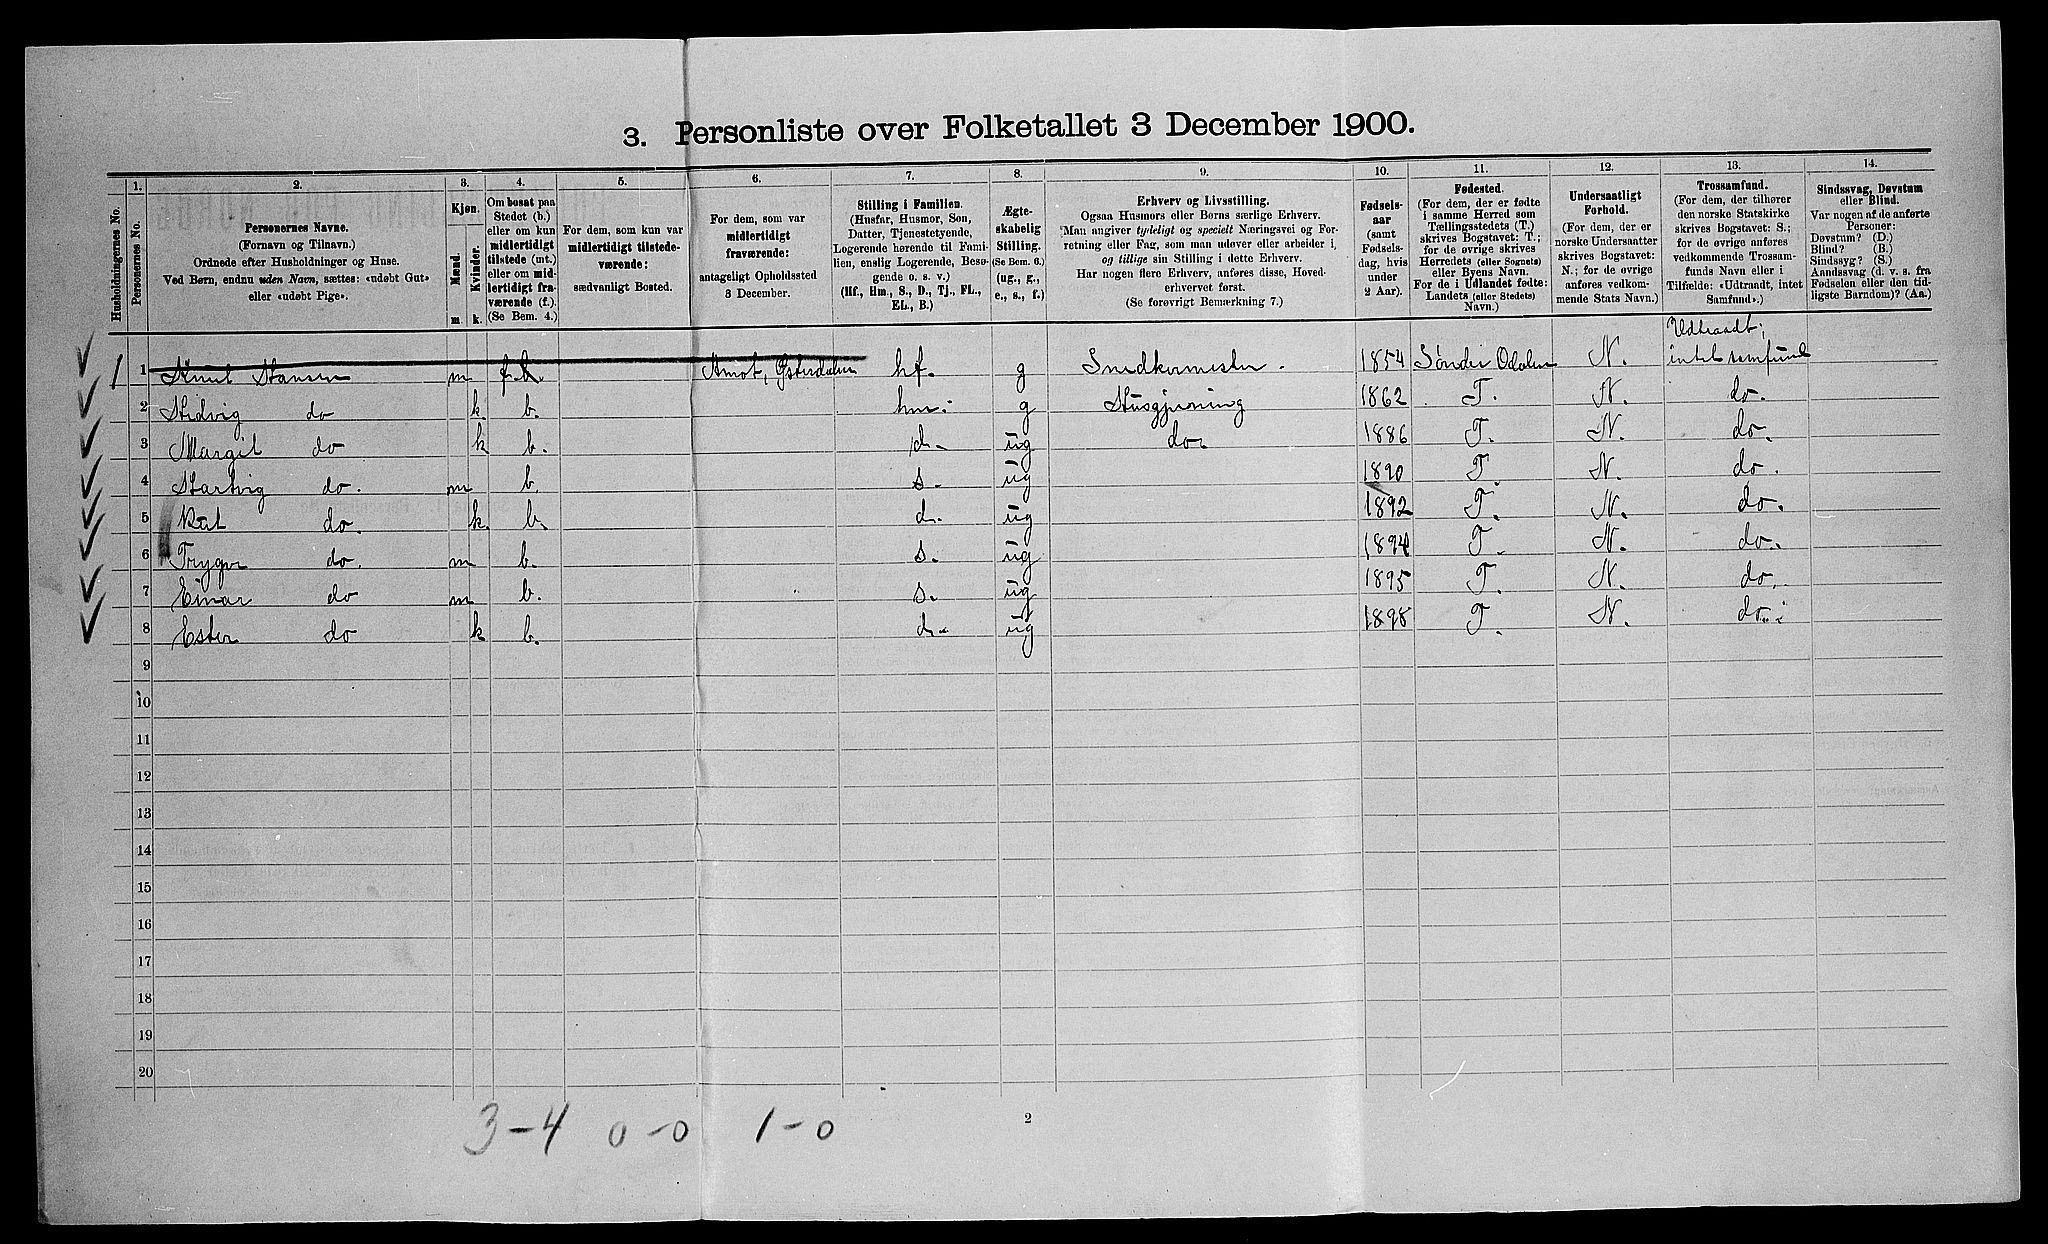 3. Personliste over Folketallet 3 December 1900.
Husholdningernes No.
1.
Personernes No.
2.
Personernes Navne.
(Fornavn og Tilnavn.)
Ordnede efter Husholdninger og Huse.
Ved Børn, endnu uden Navn, sættes: «udøbt Gut»
eller «udøbt Pige».
3.
Kjøn.
Mænd.
Kvinder.
m. k.
4.
Om bosat paa
Stedet (b.)
eller om kun
midlertidigt
tilstede (mt.)
eller om mid-
lertidigt fra-
værende (f.).
(Se Bem. 4.)
5.
For dem, som kun var
midlertidigt tilstede-
værende:
sædvanligt Bosted.
6.
For dem, som var
midlertidigt
fraværende:
antageligt Opholdssted
3 December.
7.
Stilling i Familien.
(Husfar, Husmor, Søn,
Datter, Tjenestetyende,
Logerende hørende til Fami-
lien, enslig Logerende, Besø-
gende o. s. v.)
(Hf., Hm., S., D., Tj., FL.,
EL., B.)
8.
Ægte-
skabelig
Stilling.
(Se Bem. 6.)
(ug., g.,
e., s., f.)
9.
Erhverv og Livsstilling.
Ogsaa Husmors eller Børns særlige Erhverv.
Man angiver tydeligt og specielt Næringsvei og For-
retning eller Fag, som man udøver eller arbeider i,
og tillige sin Stilling i dette Erhverv.
Har nogen flere Erhverv, anføres disse, Hoved-
erhvervet først.
(Se forøvrigt Bemærkning 7.)
10.
Fødsels-
aar
(samt
Fødsels-
dag, hvis
under
2 Aar).
11.
Fødested.
(For dem, der er fødte
i samme Herred som
Tællingsstedets (T.)
skrives Bogstavet: T.;
for de øvrige skrives
Herredets (eller Sognets)
eller Byens Navn.
For de i Udlandet fødte:
Landets (eller Stedets)
Navn.)
12.
Undersaatligt
Forhold.
(For dem, der er
norske Undersaatter
skrives Bogstavet:
N.; for de øvrige
anføres vedkom-
mende Stats Navn.)
13.
Trossamfund.
(For dem, der tilhører
den norske Statskirke
skrives Bogstavet: S.;
for de øvrige anføres
vedkommende Trossam-
funds Navn eller i
Tilfælde: «Udtraadt, intet
Samfund».)
14.
Sindssvag, Døvstum
eller Blind.
Var nogen af de anførte
Personer:
Døvstum? (D.)
Blind? (B.)
Sindssyg? (S.)
Aandssvag (d. v. s. fra
Fødselen eller den tid-
ligste Barndom)? (Aa.)
1 1 Knut Hansen m f. b. Amot, Østerdalen hf. g Snedkermester. 1854 Søndre Odalen N. Udtraadt; intet samfund
2 Hedvig do k b. hm. g Husgjerning 1862 T. N. do.
3 Margit do k b. d. ug do. 1886 T. N. do.
4 Hartvig do. m b. s. ug 1890 T. N. do.
5 Rut do. k. b. d. ug 1892 T. N. do.
6 Trygve do. m b. s. ug 1894 T. N. do.
7 Einar do m b. s. ug 1895 T. N. do.
8 Ester do k b. d. ug 1898 T. N. do.
9
10
11
12
13
14
15
16
17
18
19
20
3-4 0-0 1-0
2